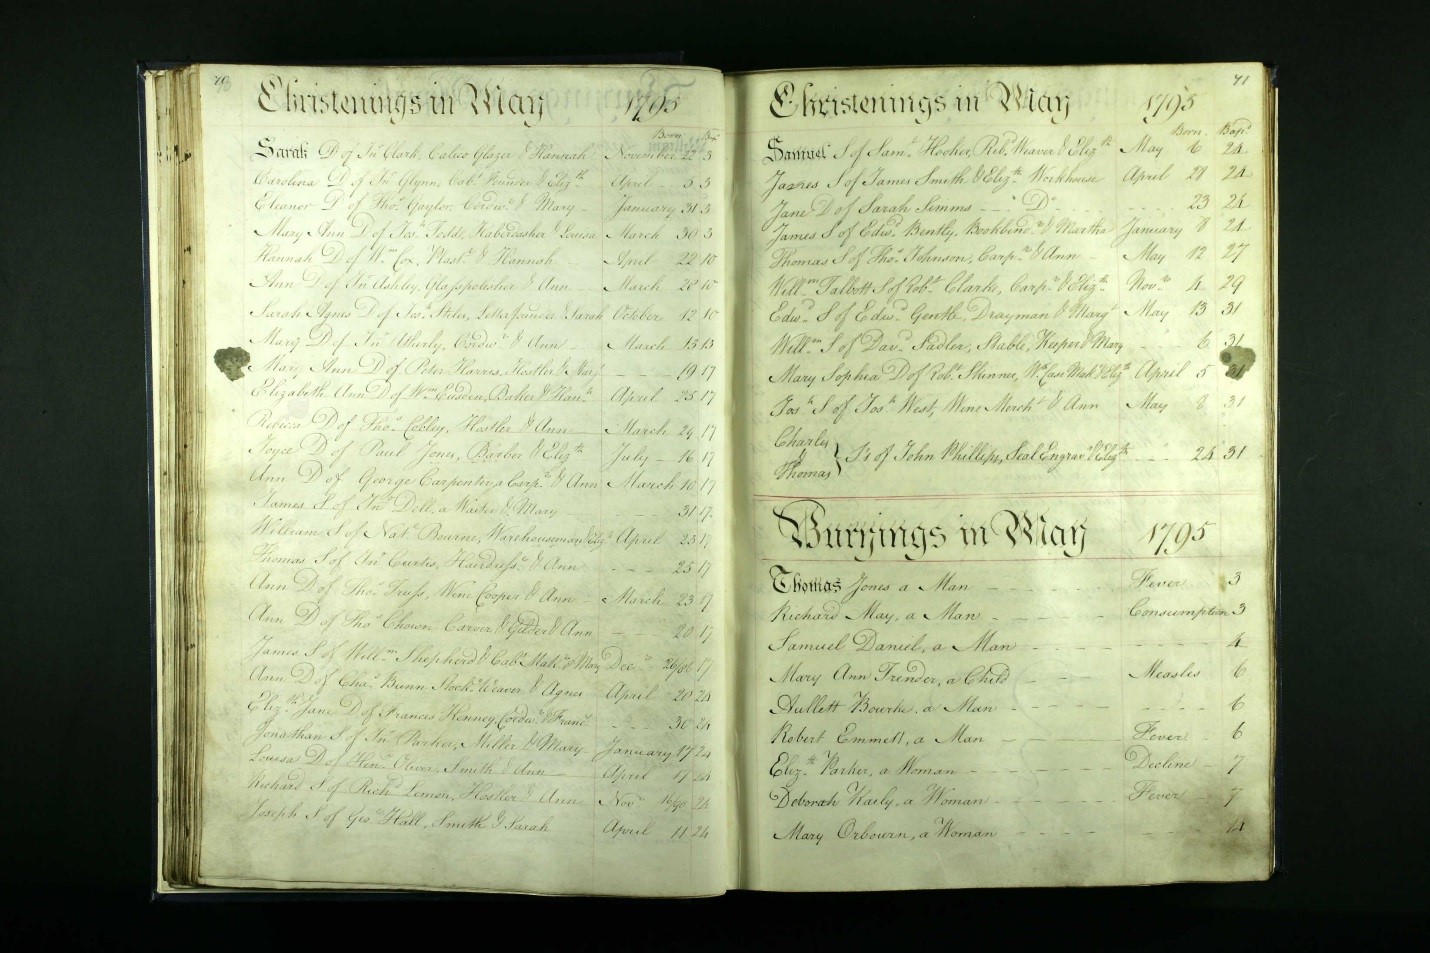 70
Christenings in May 1795
Born Bap
Sarah D of Jno Clark, Calico Glazer & Hannah November 22 3
Carolina D of Jno Glynn, Cabt Founder & Elizth April 5 3
Eleanor D of Thos Gaylor, Cordwr & Mary January 31 3
Mary Ann D of Jos Todd, Haberdasher & Louisa March 30 3
Hannah D of Wm Cox, Plastr & Hannah April 22 10
Ann D of Jno Ashley, Glasspolisher & Ann March 28 10
Sarah Agnes D of Jas Stiles, Letterfounder & Sarah October 12 10
Mary D of Jno Atherly, Cordwr & Ann March 13 13
Mary Ann D of Peter Harris, Hostler & Mary 19 17
Elizabeth Ann D of Wm Eusden, Baker & Hanh April 25 17
Rebecca D of Thos Cobley, Hostler & Ann March 24 17
Joyce D of Paul Jones, Barber & Elizth July 16 17
Ann D of George Carpenter, a Carpr & Ann March 10 17
James S of Jno Dell, a Waiter & Mary 31 17
William S of Natl Bourne, Warehouseman & Elizth April 23 17
Thomas S of Jno Curtis, Hairdressr & Ann 25 17
Ann D of Thos Tress, Wine Cooper & Ann March 23 17
Ann D of Thos Chown Carver & Gilder & Ann 20 17
James S of Willm Shepherd & Cabt Makr & Mary Decr 26/86 17
Ann D of Chas Bunn Stockg Weaver & Agnes April 20 24
Elizth Jane D of Francis Henney, Cordwr & Francs 30 24
Jonathan S of Jno Parker, Miller & Mary January 17 24
Louisa D of Heny Oliver, Smith & Ann April 17 24
Richard S of Richd Lemon, Hostler & Ann Novr 16/90 24
Joseph S of Geo Hall, Smith & Sarah April 11 24
71
Christenings in May 1795
Born Bapt
Samuel S of Saml Hooker, Ribn Weaver & Elizth May 6 24
James S of James Smith & Elizth Workhouse April 21 24
Jane D of Sarah Simms Do 23 24
James S of Edwd Bently, Bookbindr & Martha January 8 24
Thomas S of Thos Johnson, Carpr & Ann May 12 27
Willm Talbott S of Robt Clarke, Carpr & Elizth Novr 4 29
Edwd S of Edwd Gentle, Drayman & Margt May 13 31
Willm S of Davd Sadler, Stable Keeper & Mary 6 31
Mary Sophia D of Robt Skinner, Wh Case Makr & Elizth April 5 31
Josh S of Josh West, Wine Mercht & Ann May 8 31
Charles
&
Thomas } Ss of John Phillips, Seal Engravr & Elizth 24 31
Buryings in May 1795
Thomas Jones a Man Fever 3
Richard May, a Man Consumption 3
Samuel Daniel, a Man 4
Mary Ann Trender, a Child Measles 6
Aullett Bourke, a Man 6
Robert Emmett, a Man Fever 6
Elizth Parker, a Woman Decline 7
Deborah Kaily, a Woman Fever 7
Mary Orbourn, a Woman 14